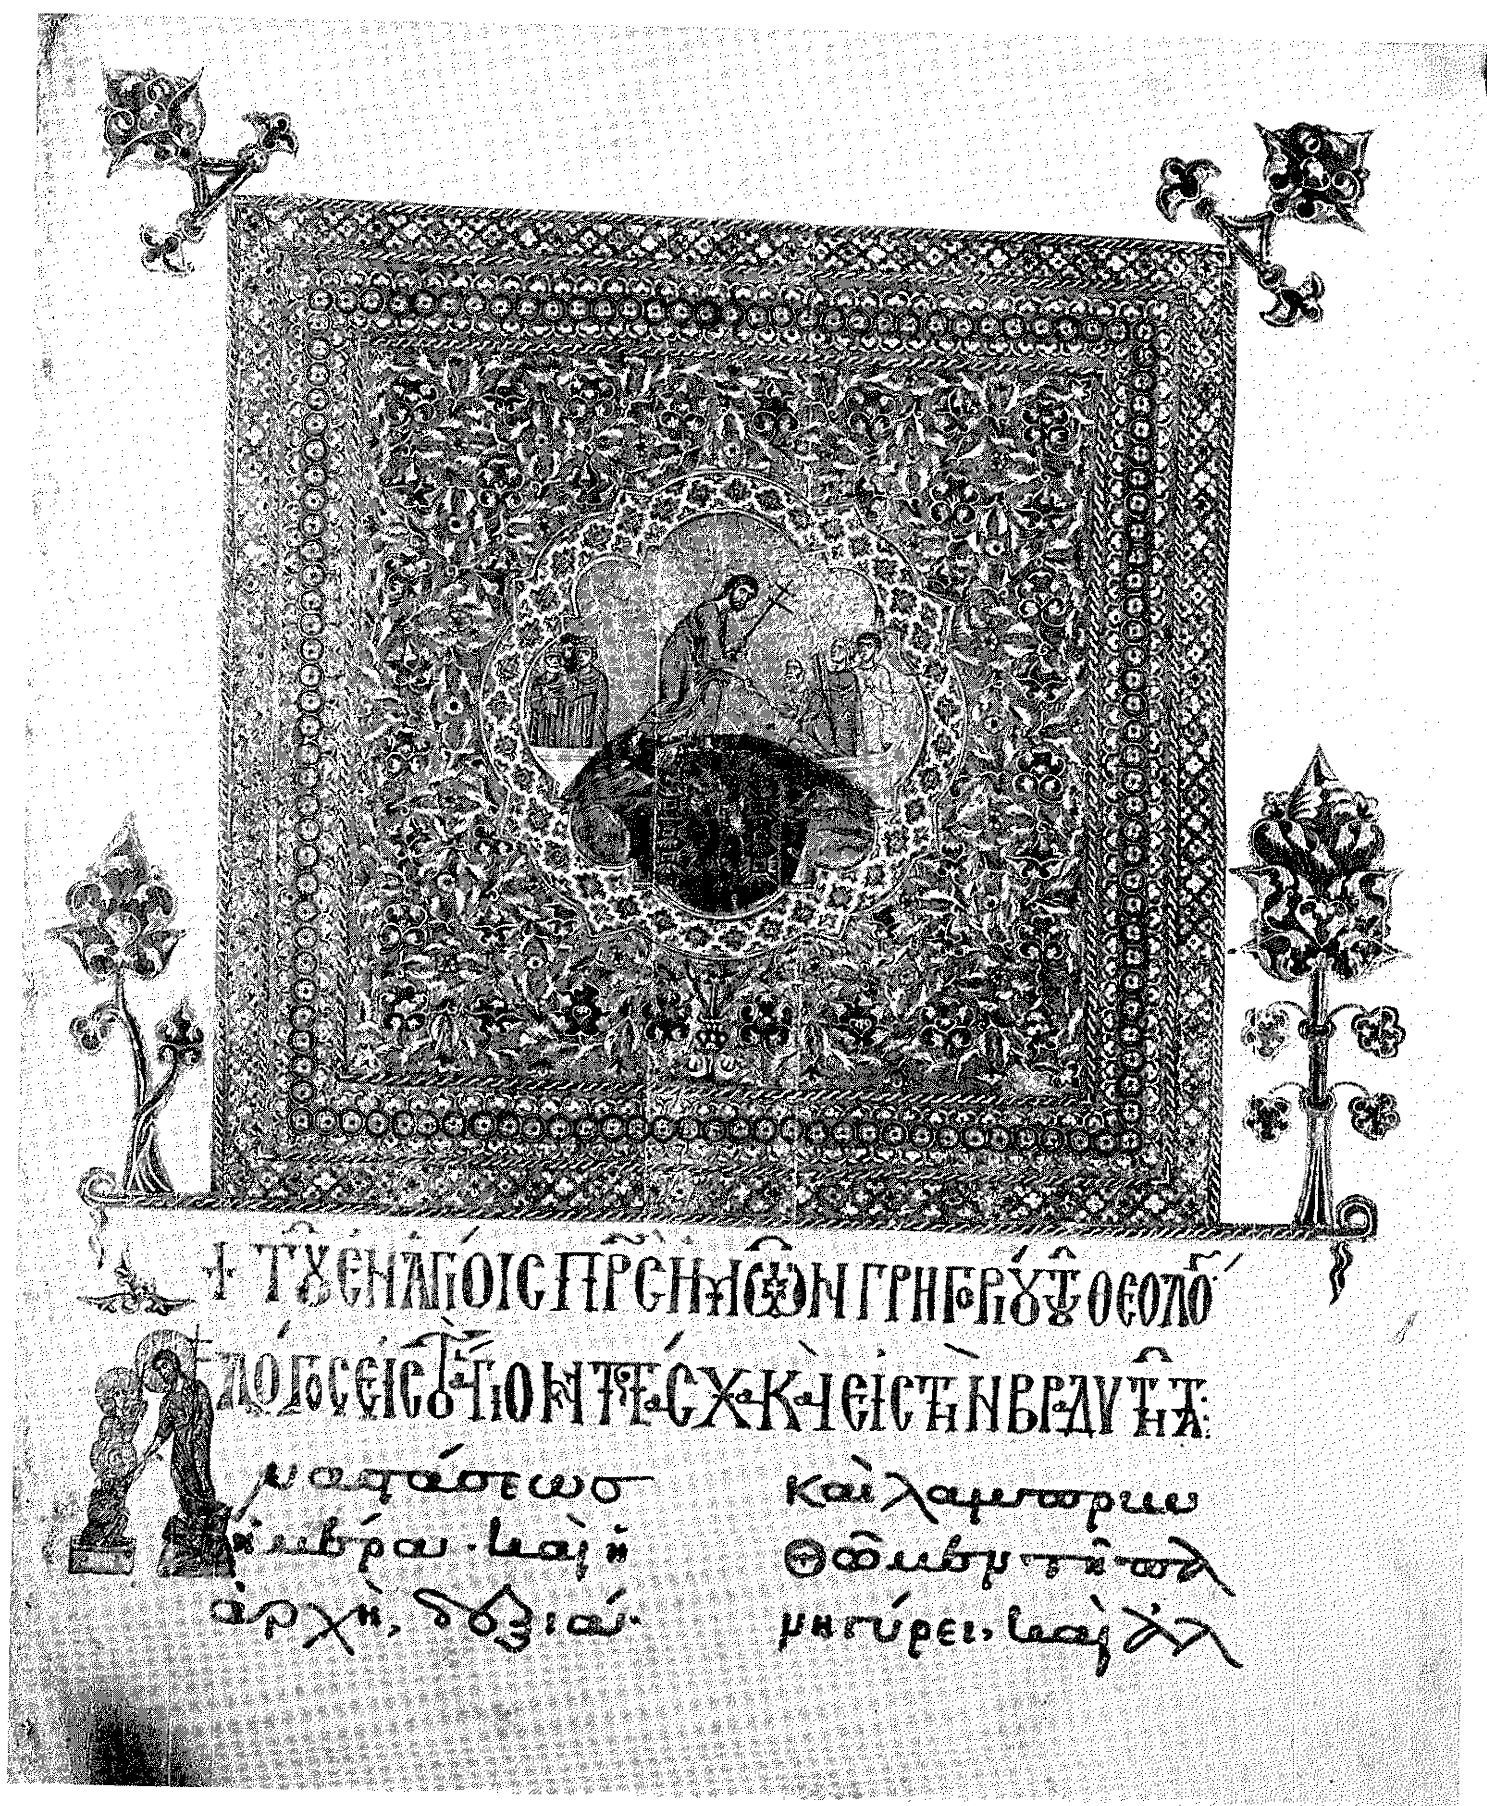 + ΤȢ ΕΝ ΑΓΙΟΙΣ ΠΡΣ ΗΜΩΝ ΓΡΗΓΟΡΙȢ ΤȢ ΘΕΟΛΟ
ΛΟΓΟΣ ΕΙΣ ΤΟ ΑΓΙΟΝ ΠΑΣΧΑ ΚΑΙ ΕΙΣ ΤΗΝ ΒΡΑΔΥΤΗΤΑ:
Αναστάσεως
ἡμέρα· καὶ ἡ
ἀρχὴ, δεξιά·
καὶ λαμπρυν
θῶμεν τῆ πα
νηγύρει, καὶ ἀλ